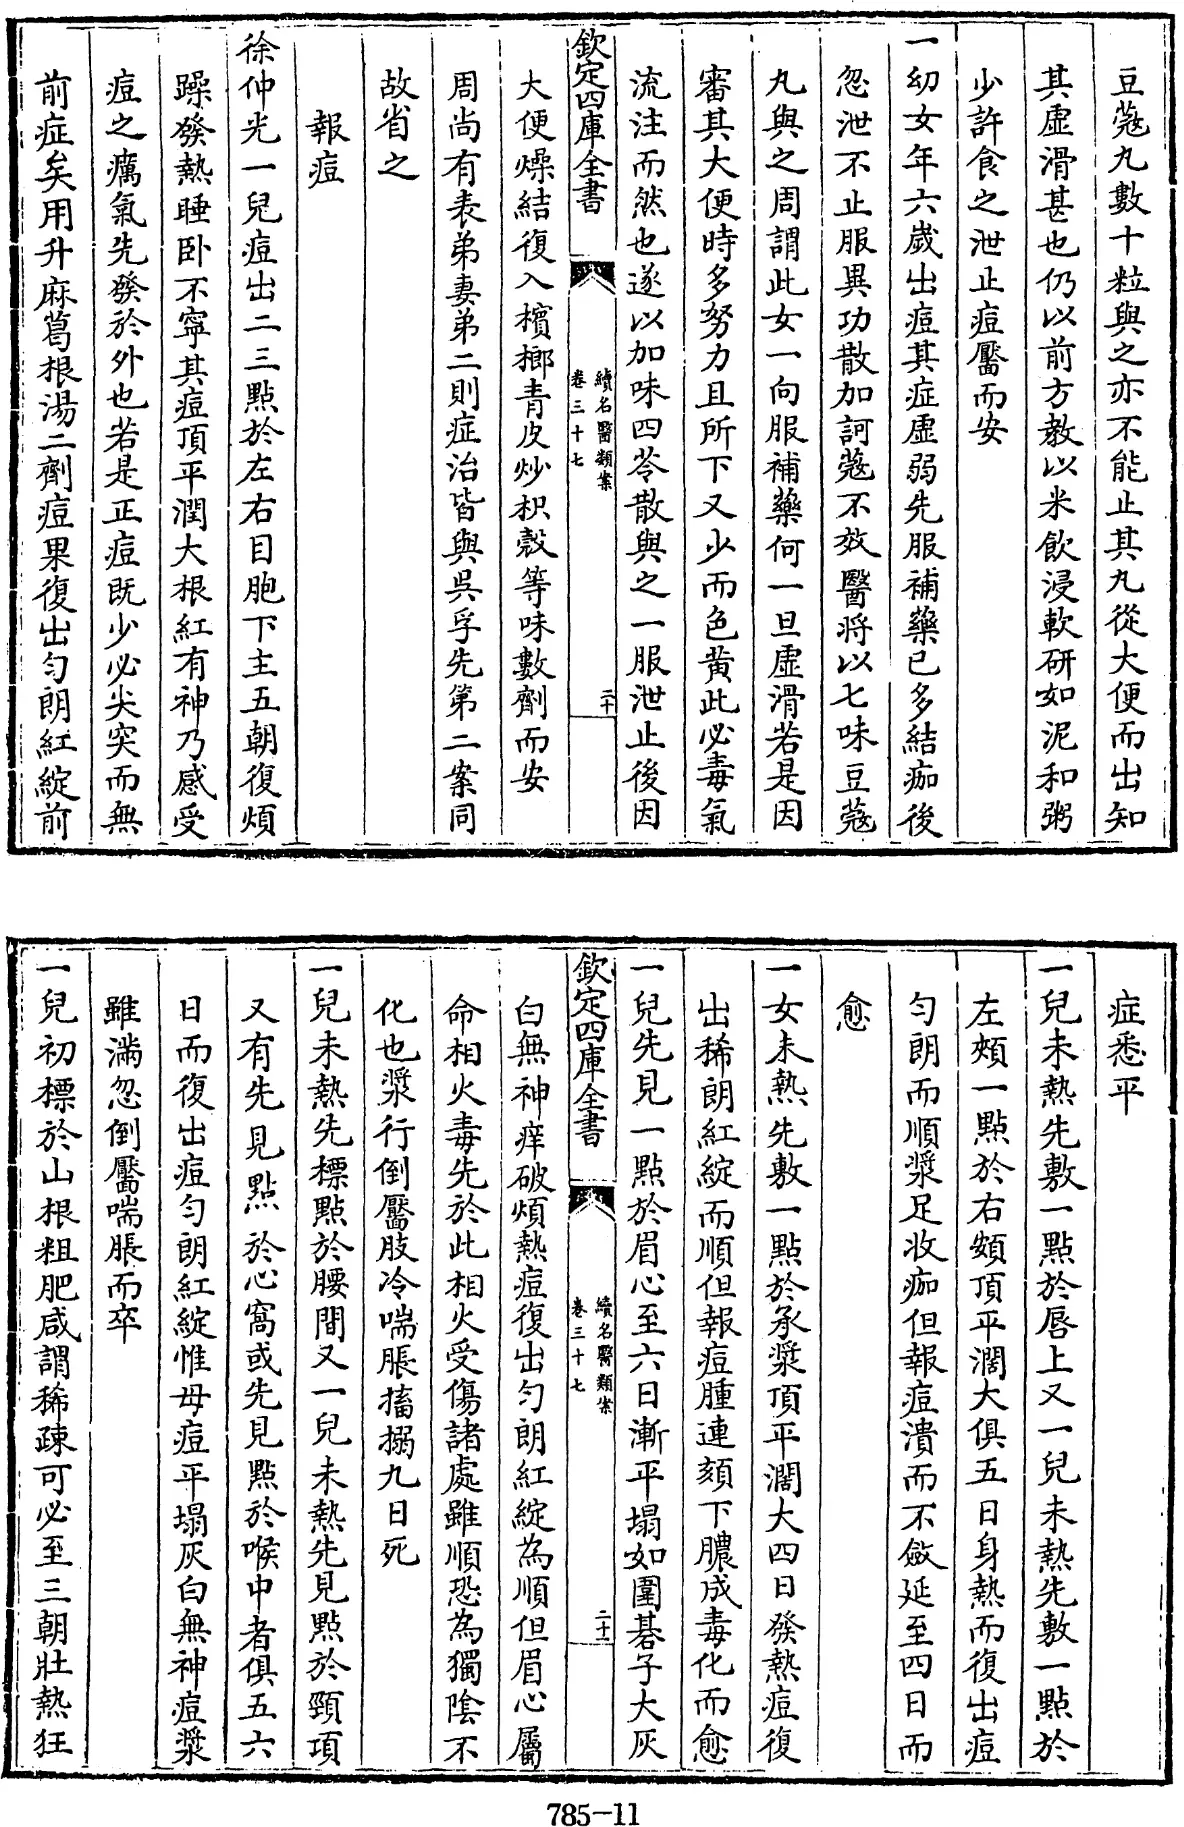 豆蔻丸數十粒與之亦不能止其丸從大便而出知
其虛滑甚也仍以前方教以米飲浸軟研如泥和粥
少許食之泄止痘靨而安
一幼女年六歲出痘其症虛弱先服補藥已多結痂後
忽泄不止服異功散加訶蔻不效醫將以七味豆蔻
丸與之周謂此女一向服補藥何一旦虛滑若是因
審其大便時多努力且所下又少而色黃此必毒氣
流注而然也遂以加味四苓散與之一服泄止後因
欽定四庫全書
續名醫類案
卷三十七
二十
大便燥結復入檳榔青皮炒枳殼等味數劑而安
周尚有表弟妻弟二則症治皆與吳孚先第二案同
故省之
報痘
徐仲光一兒痘出二三點於左右目胞下主五朝復煩
躁發熱睡卧不寧其痘頂平潤大根紅有神乃感受
痘之癘氣先發於外也若是正痘既少必尖突而無
前症矣用升麻葛根湯二劑痘果復出勻朗紅綻前
症悉平
一兒未熱先敷一點於唇上又一兒未熱先敷一點於
左頰一點於右頰頂平濶大俱五日身熱而復出痘
勻朗而順漿足收痂但報痘潰而不斂延至四日而
愈
一女未熱先敷一點於承漿頂平濶大四日發熱痘復
出稀朗紅綻而順但報痘腫連頦下膿成毒化而愈
一兒先見一點於眉心至六日漸平塌如圍碁子大灰
欽定四庫全書
續名醫類案
卷三十七
二十一
白無神痒破煩熱痘復出勻朗紅綻為順但眉心屬
命相火毒先於此相火受傷諸處雖順恐為獨陰不
化也漿行倒靨肢冷喘脹搐搦九日死
一兒未熱先標點於腰間又一兒未熱先見點於頸項
又有先見點於心窩或先見點於喉中者俱五六
日而復出痘勻朗紅綻惟母痘平塌灰白無神痘漿
雖滿忽倒靨喘脹而卒
一兒初標於山根粗肥咸謂稀疎可必至三朝壯熱狂
785-11